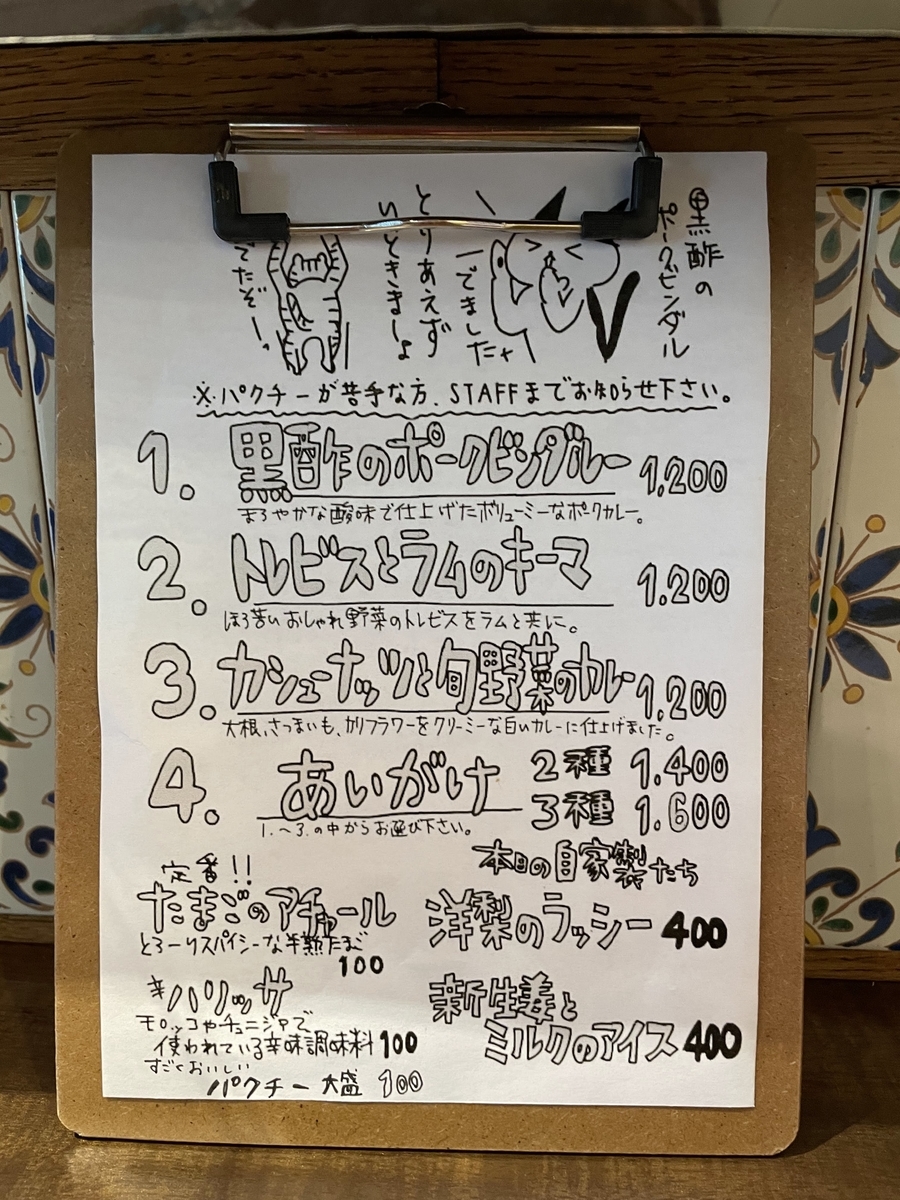 黒酢の
ポークビンダル
できました
とりあえず
いっときましょ
でたぞー
※パクチーが苦手な方、STAFFまでお知らせ下さい。
1. 黒酢のポークビンダルー 1,200
まろやかな酸味で仕上げたボリューミーなポークカレー。
2. トレビスとラムのキーマ 1,200
ほろ苦いおしゃれ野菜のトレビスをラムと共に。
3. カシューナッツと旬野菜のカレー 1,200
大根、さつまいも、カリフラワーをクリーミーな白いカレーに仕上げました。
4. あいがけ 2種 1,400
3種 1,600
1.～3.の中からお選び下さい。
定番!!
たまごのアチャール
とろーりスパイシーな半熟たまご
100
辛ハリッサ
モロッコやチュニジアで
使われている辛味調味料 100
すごくおいしい
パクチー大盛 100
本日の自家製たち
洋梨のラッシー 400
新生姜と
ミルクのアイス 400